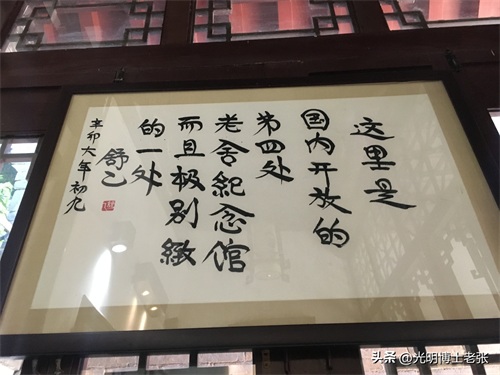 这里是
国内开放的
第四处
老舍紀念馆
而且极别緻
的一处
舒乙
辛卯大年初九
头条 @光明博士老张